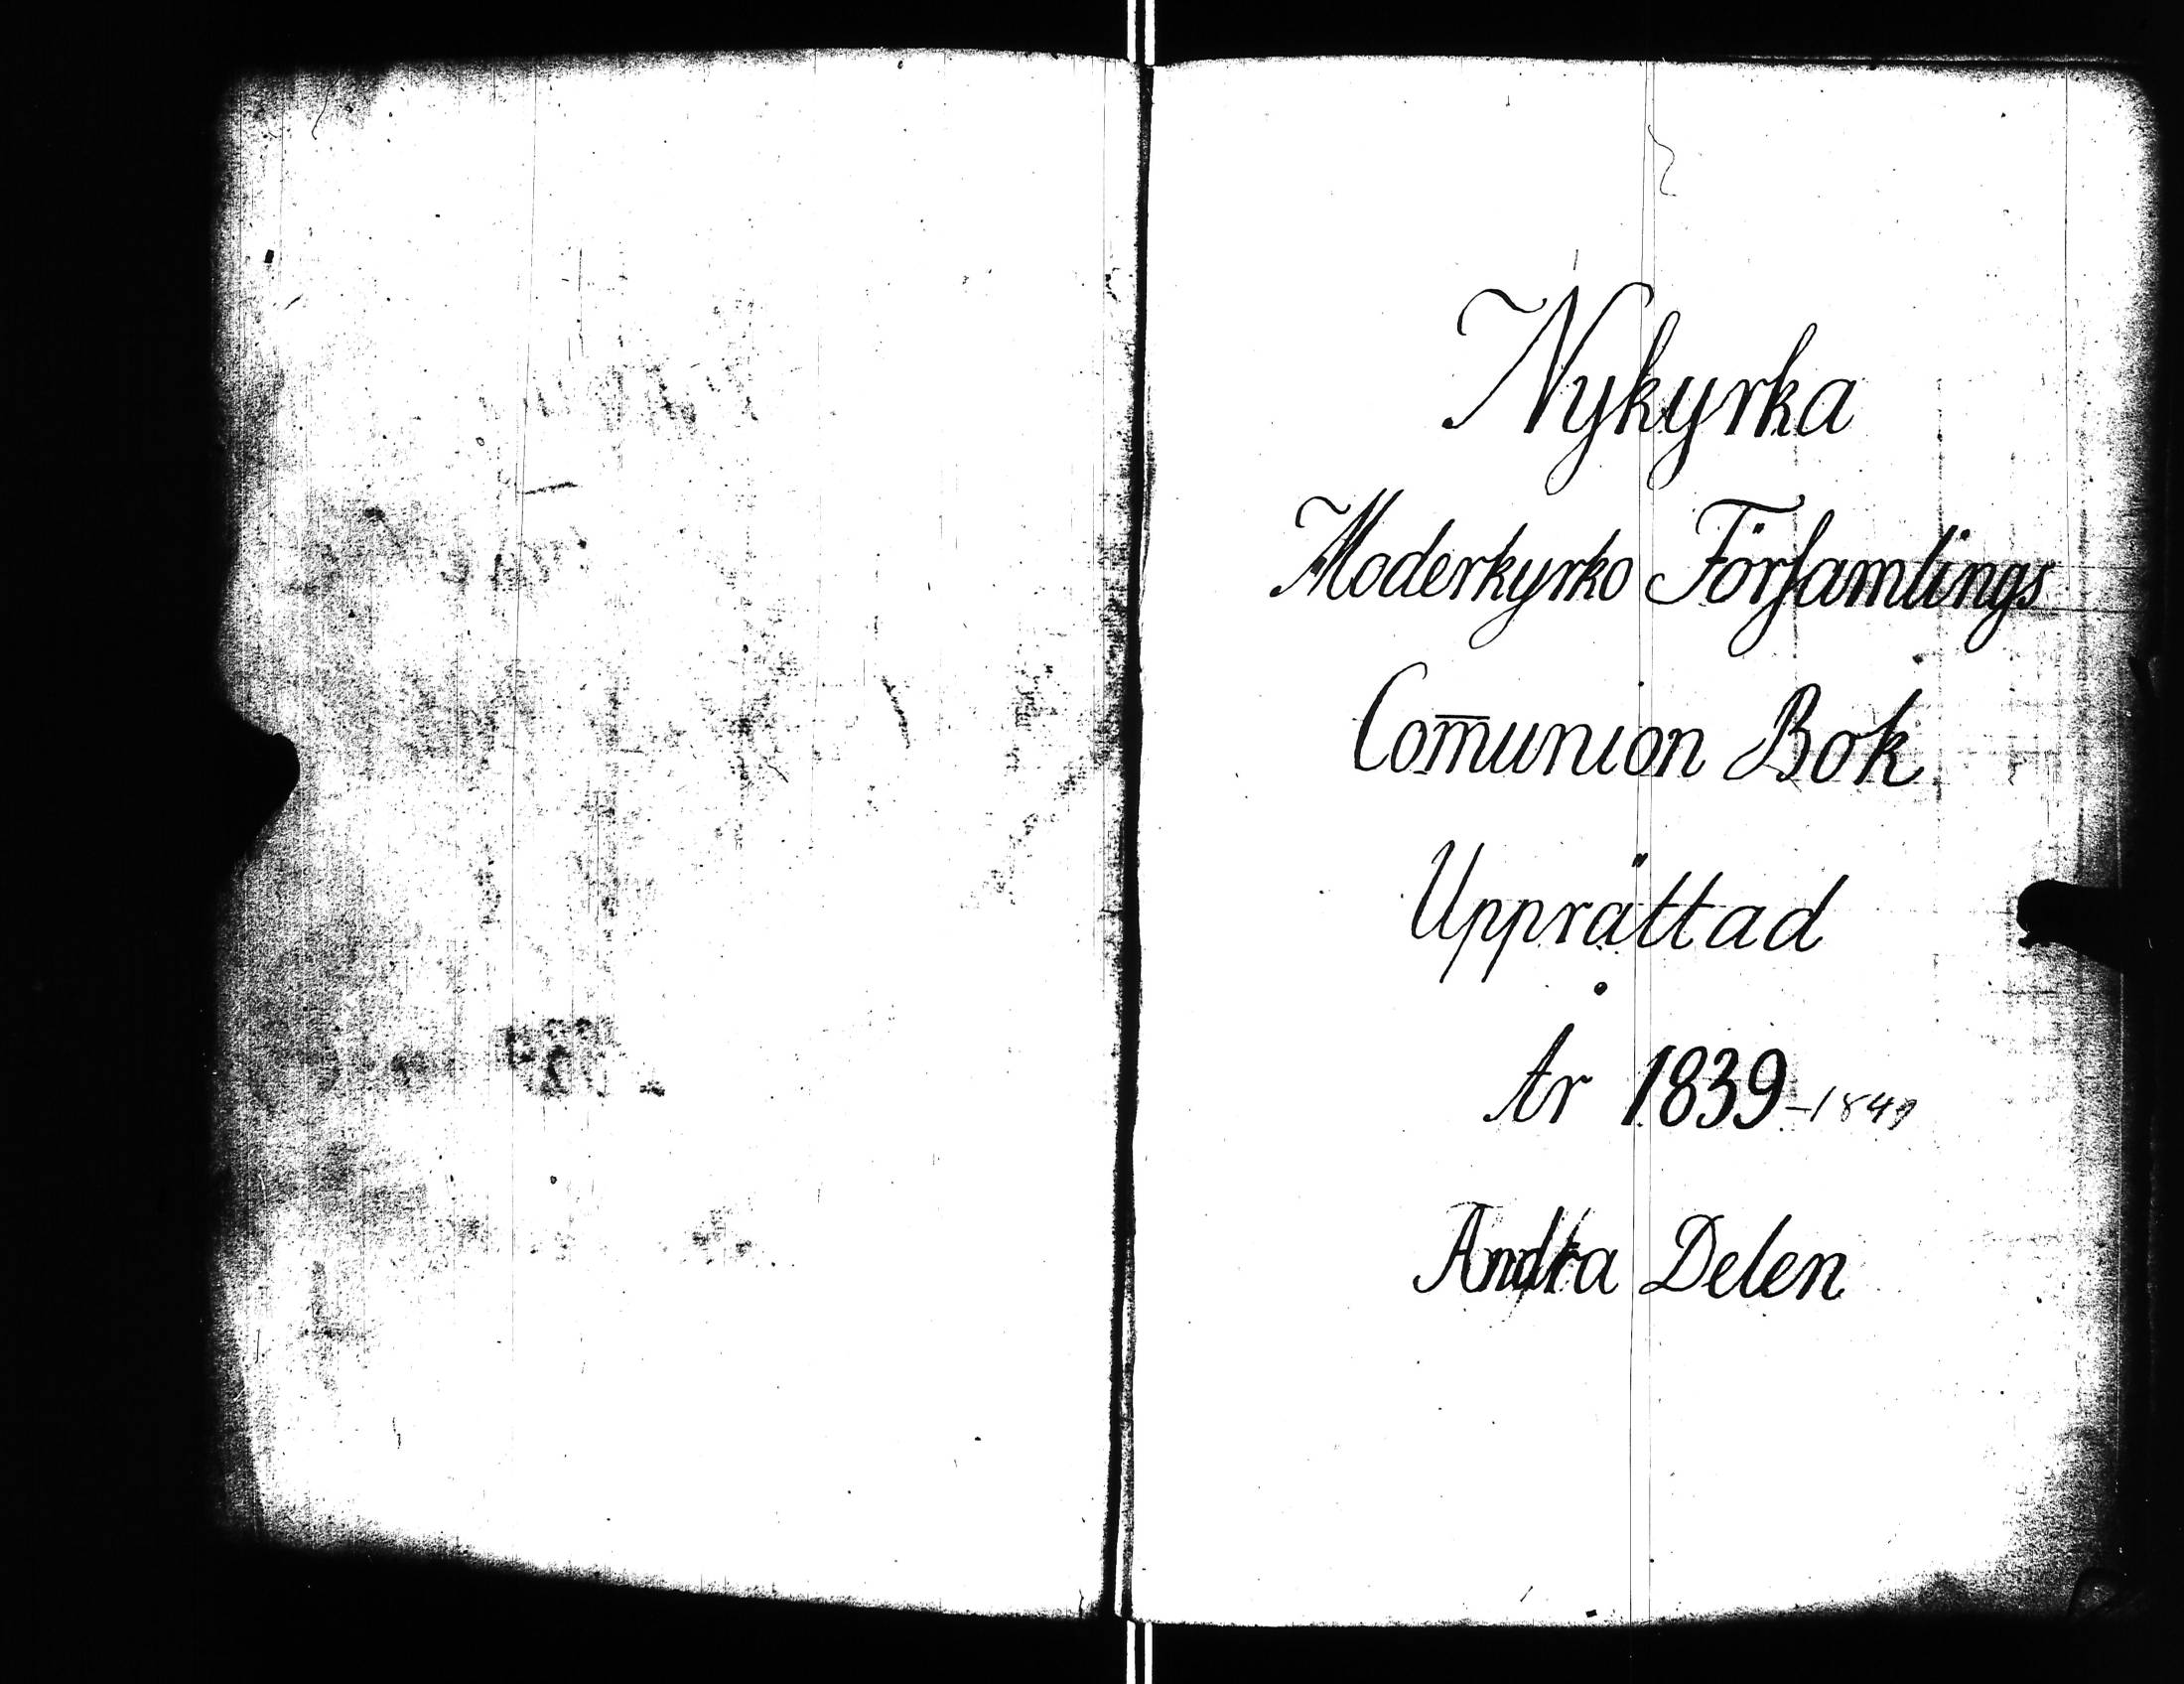 Nykyrka
Moderkyrko Församlings
Com̄union Bok
Upprättad
År 1839-1849
Andra Delen